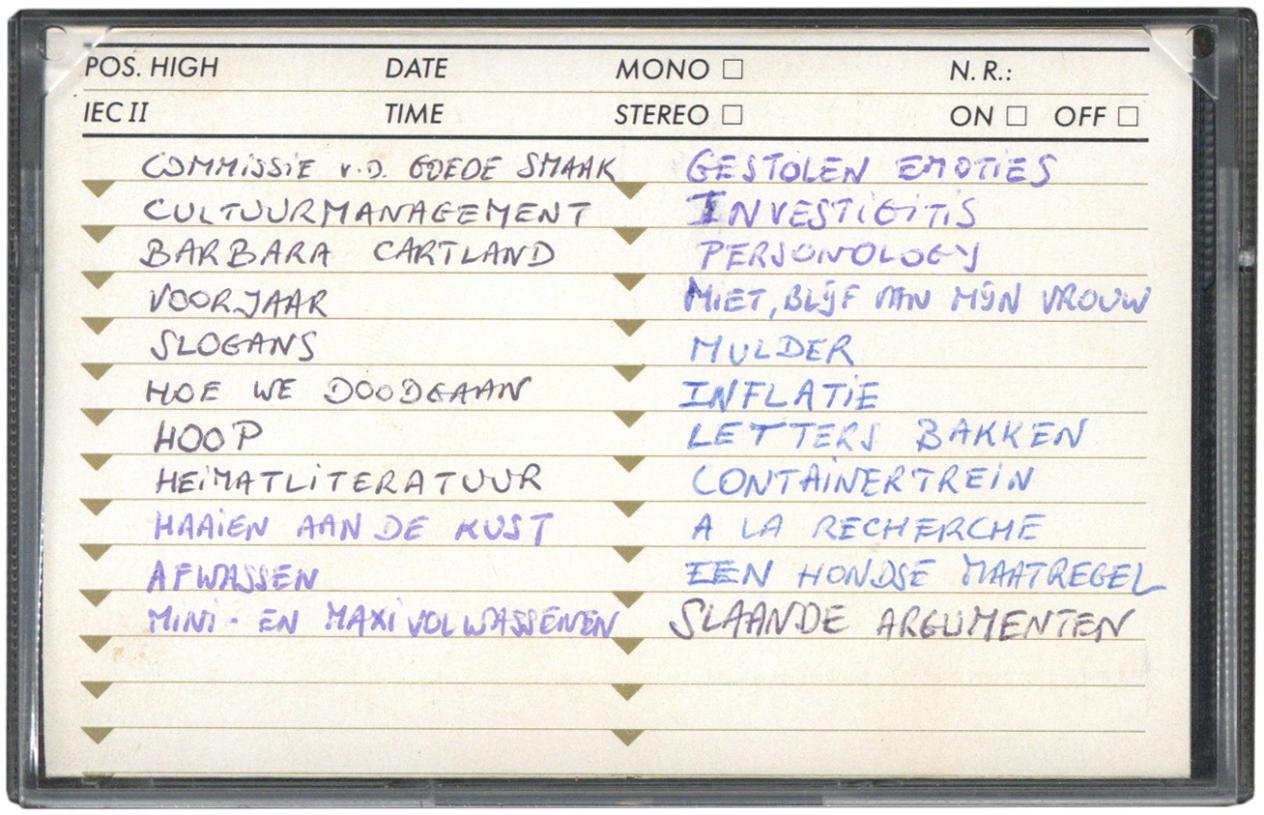 POS. HIGH DATE MONO N. R.:
IEC II TIME STEREO ON OFF
COMMISSIE v.D. GOEDE SMAAK
CULTUURMANAGEMENT
BARBARA CARTLAND
VOORJAAR
SLOGANS
HOE WE DOODGAAN
HOOP
HEIMATLITERATUUR
HAAIEN AAN DE KUST
AFWASSEN
MINI- EN MAXI VOLWASSENEN
GESTOLEN EMOTIES
INVESTIGITIS
PERSONOLOGY
MIET, BLIJF VAN MIJN VROUW
MULDER
INFLATIE
LETTERS BAKKEN
CONTAINERTREIN
A LA RECHERCHE
EEN HONDSE MAATREGEL
SLAANDE ARGUMENTEN